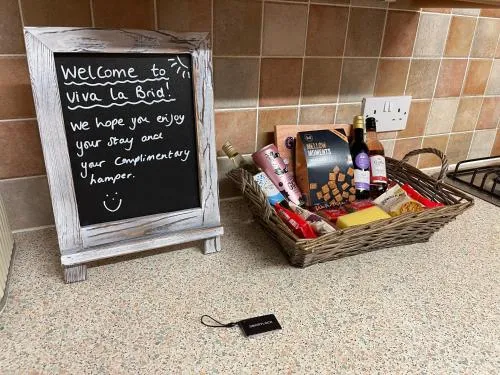 Welcome to
Viva La Brid!
We hope you enjoy
your Stay and
your Complimentary
hamper.
MELLOW
MOMENTS